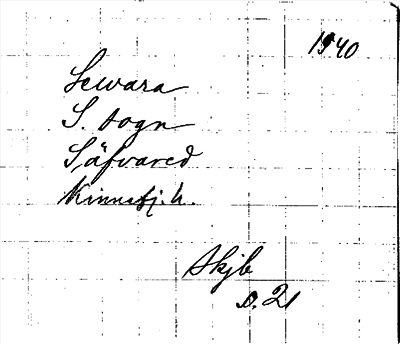 1940
Lewara
S. sogn
Säfvared
Kinnefj. h.
Skjb
s. 21